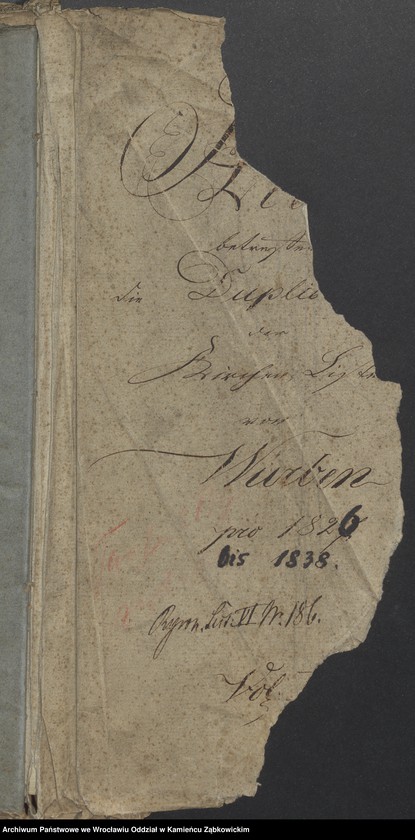 betreffend
die Duplic
der
Kirchen Liste
von
Würben
pro 1826
bis 1838.
Lit. VI Nr. 186.
Vol.
Archiwum Państwowe we Wrocławiu Oddział w Kamieńcu Ząbkowickim